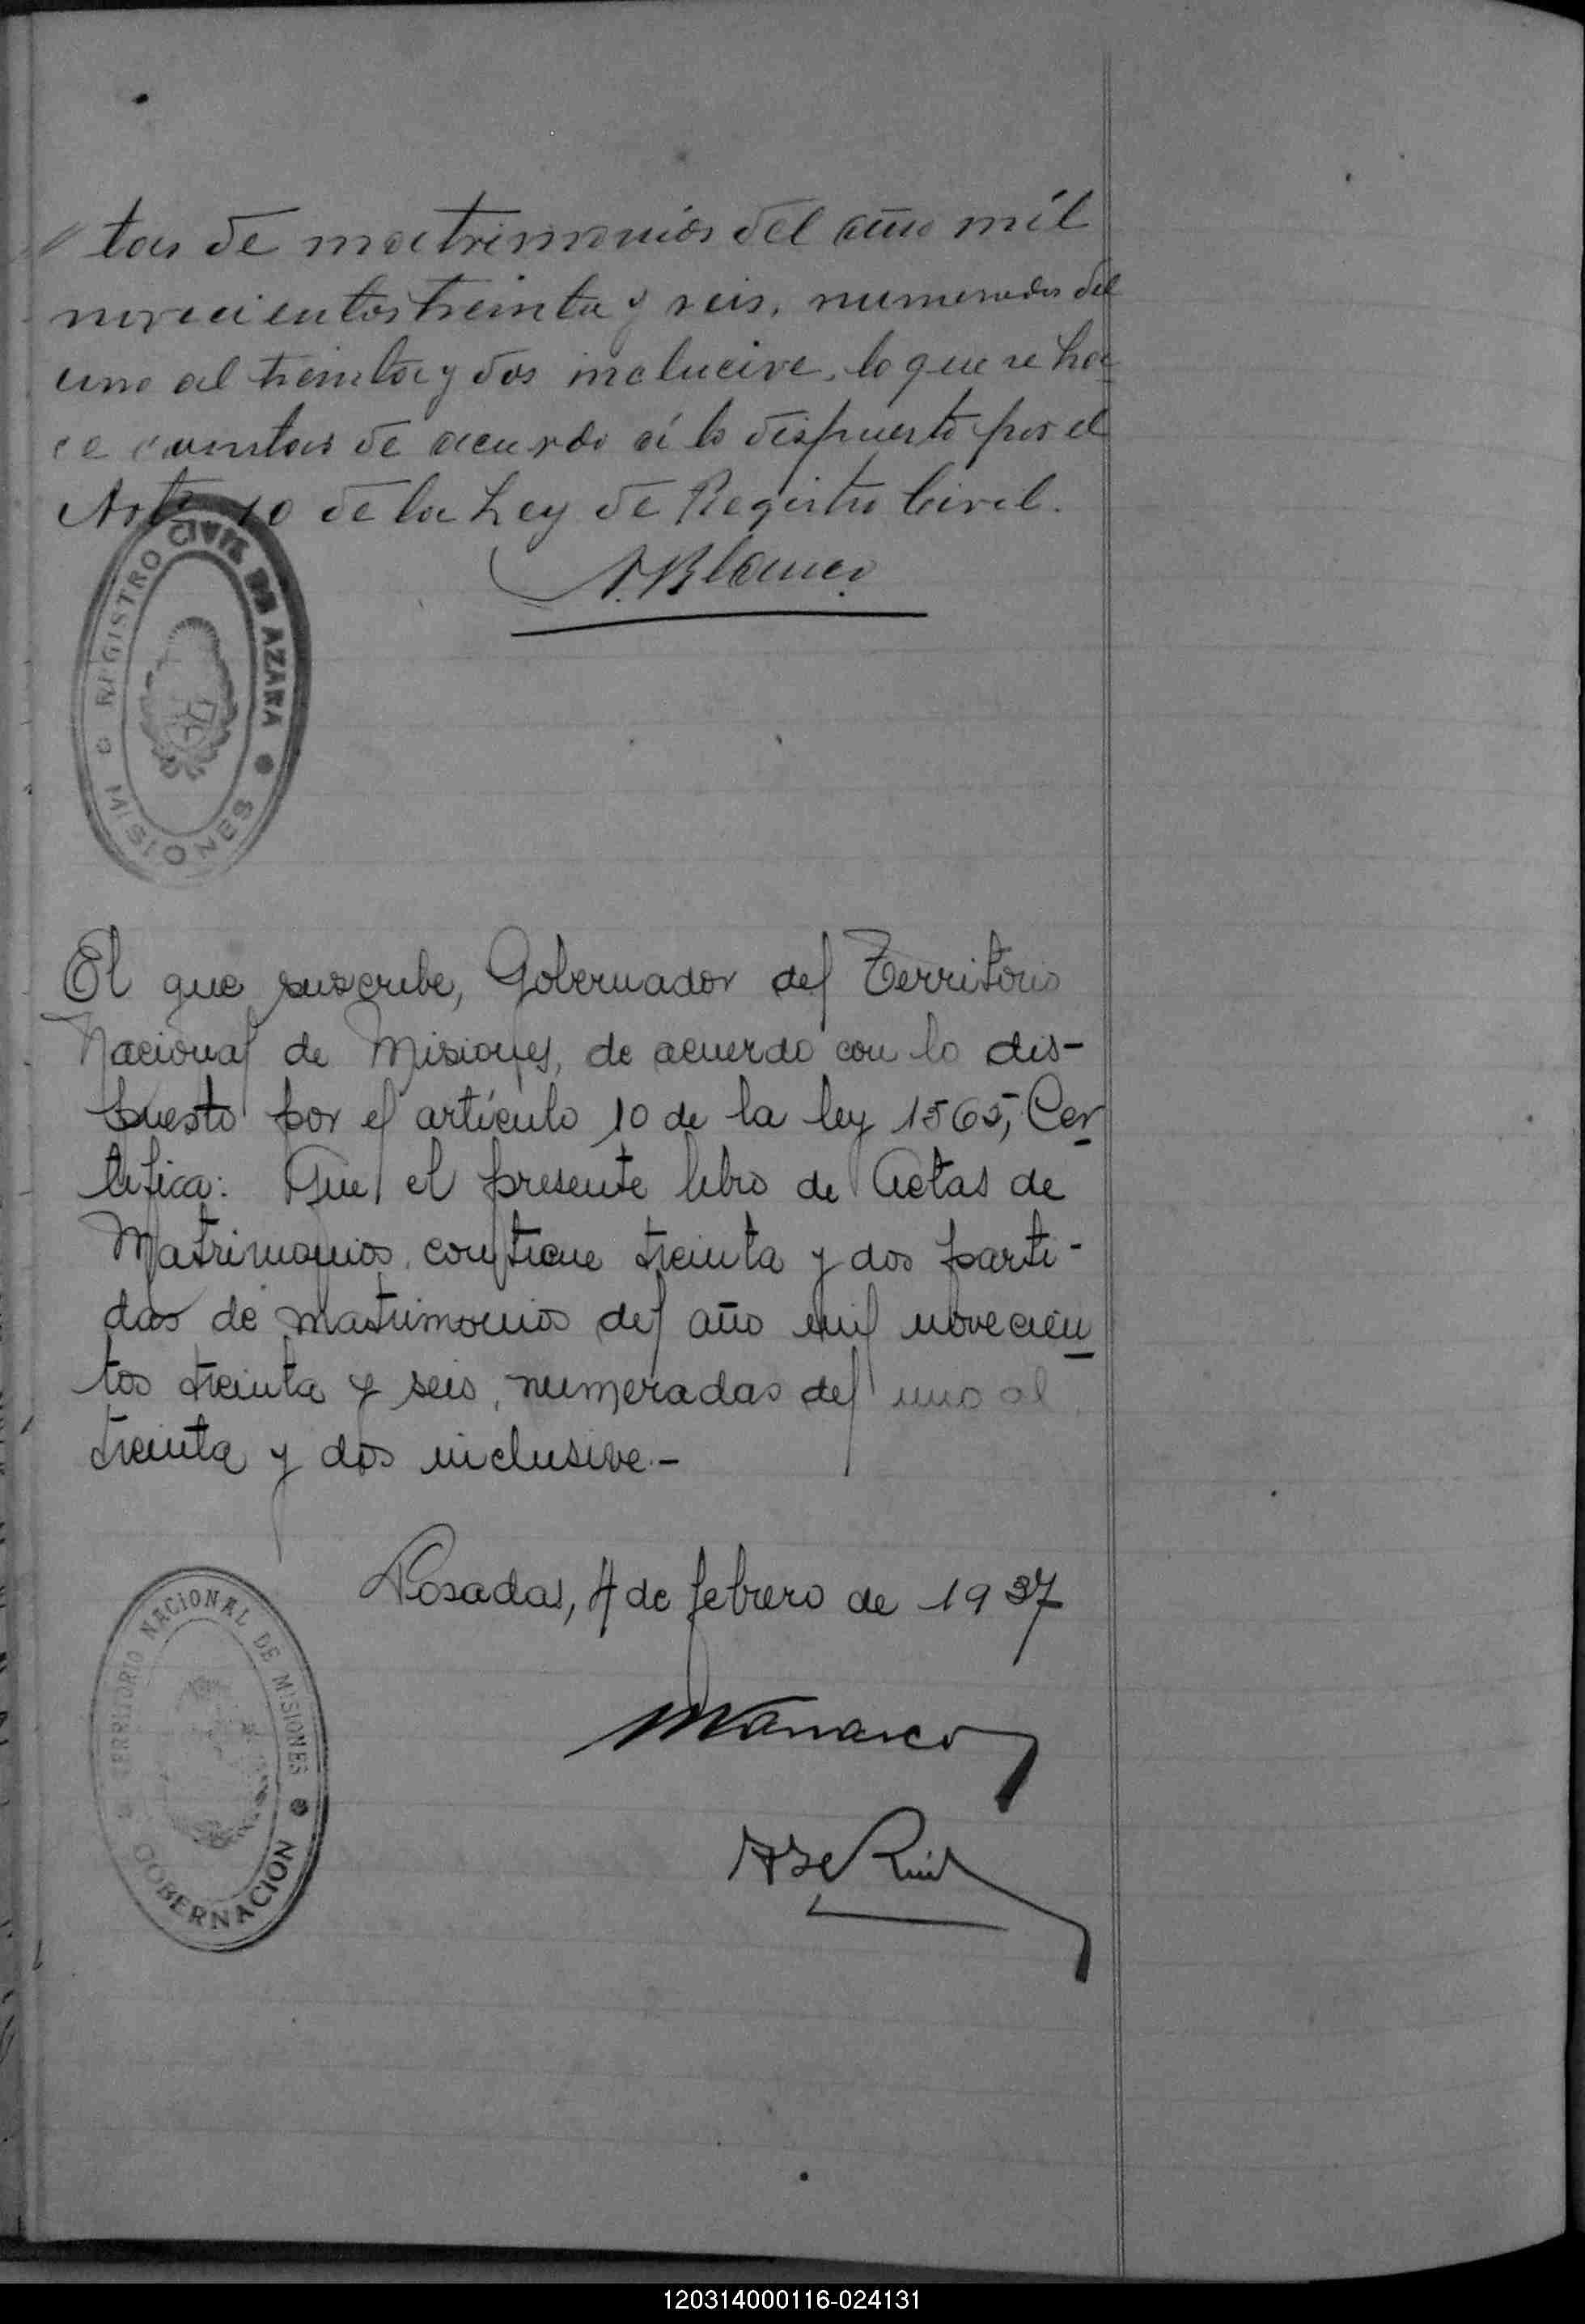 tas de matrimonios del año mil
novecientos treinta y seis, numerados del
uno al treinta y dos inclucive, lo que se ha-
ce constar de acuerdo á lo dispuesto por el
Art. 10 de la Ley de Registro Civil.
Blanco
REGISTRO CIVIL DE AZARA
MISIONES
El que suscribe, Gobernador del Territorio
Nacional de Misiones, de acuerdo con lo dis-
puesto por el artículo 10 de la ley 1565, Cer-
tifica: Que el presente libro de Actas de
Matrimonios, contiene treinta y dos parti-
das de matrimonios del año mil novecien-
tos treinta y seis, numeradas del uno al
treinta y dos inclusive.-
Posadas, 4 de febrero de 1937
TERRITORIO NACIONAL DE MISIONES
GOBERNACION
120314000116-024131